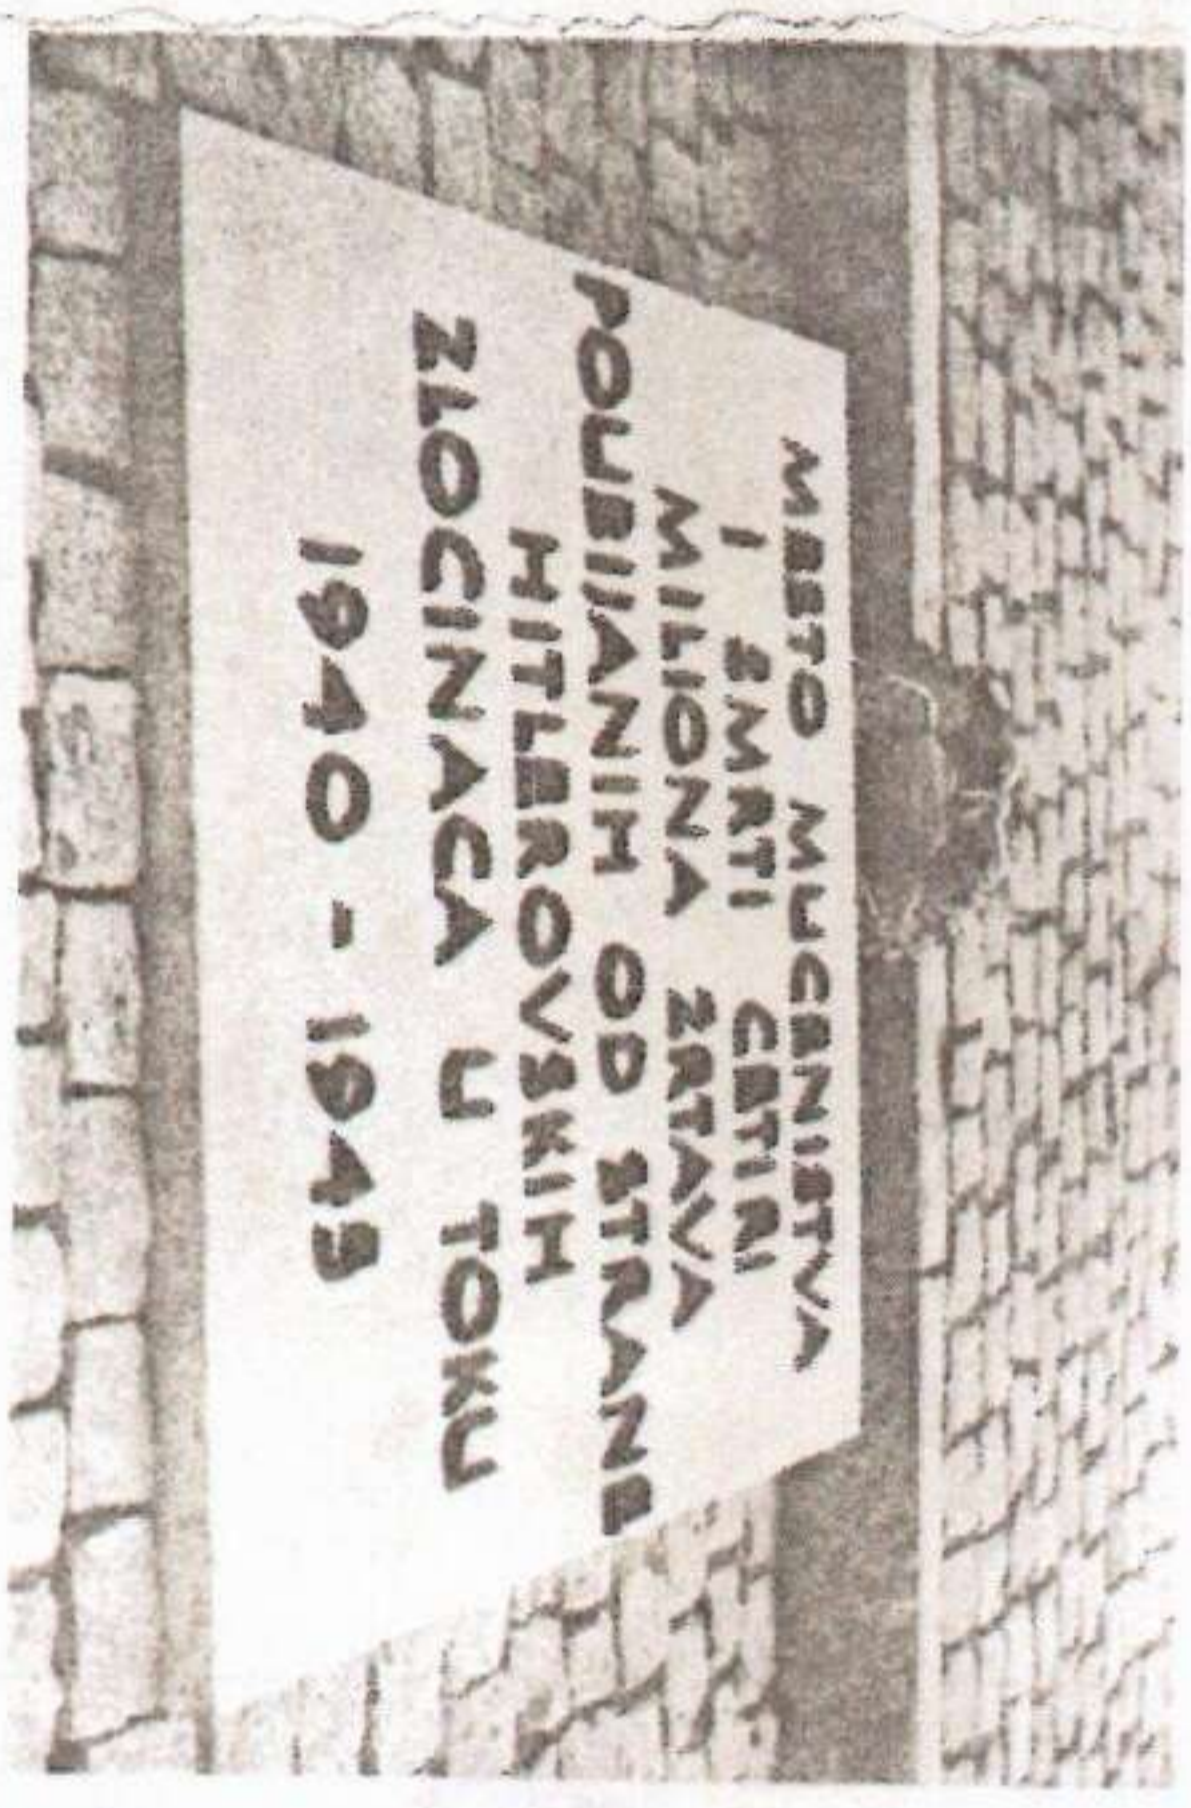 MESTO MUCENISTVA
I SMRTI CETIRI
MILIONA ZRTAVA
POUBIJANIH OD STRANE
HITLEROVSKIH
ZLOCINACA U TOKU
1940 - 1945